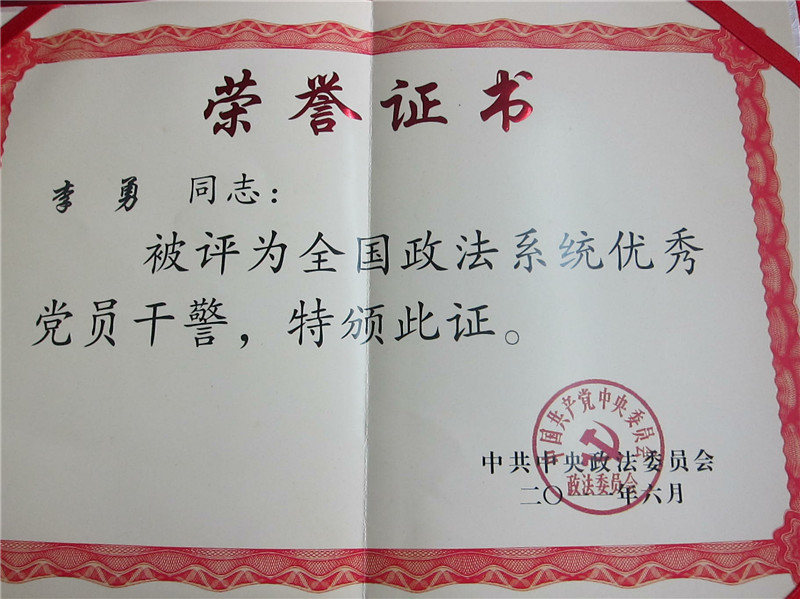 荣誉证书
李 勇 同志：
被评为全国政法系统优秀
党员干警，特颁此证。
中国共产党中央委员会
政法委员会
中共中央政法委员会
二〇一一年六月